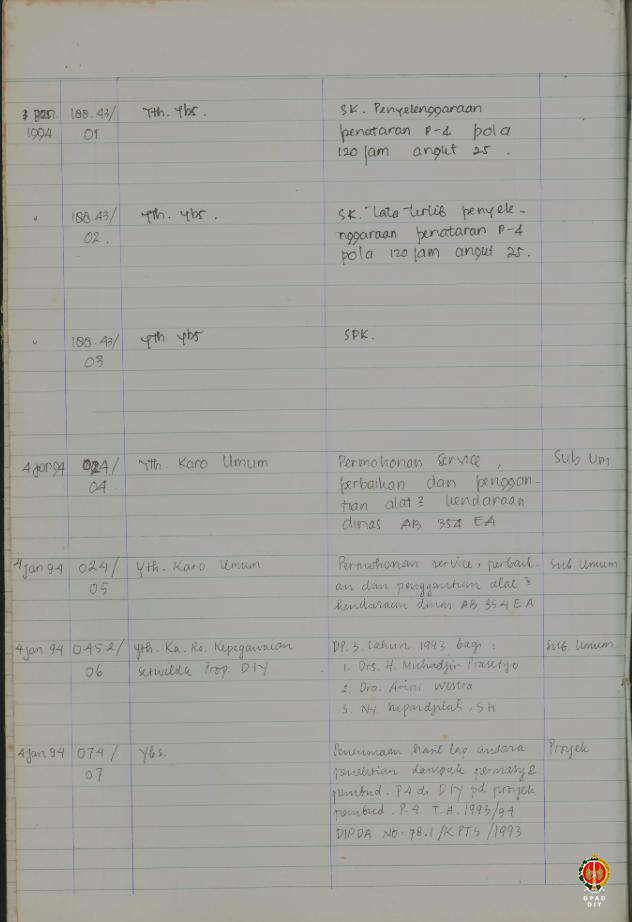 3 Jan 188.43/ Yth. Ybs. SK. Penyelenggaraan
1994 01 penataran P-4 pola
120 jam angkt 25.
" 188.43/ Yth. Ybs. SK. Tata-tertib penyele-
02. nggaraan penataran P-4
pola 120 jam angkt 25.
" 188.43/ Yth Ybs SPK.
03
4 Jan 94 024/ Yth. Karo Umum Permohonan Service, Sub Um
04 perbaikan dan penggan-
tian alat2 kendaraan
dinas AB 354 EA
4 Jan 94 024/ Yth. Karo Umum Permohonan service, perbaik- Sub. Umum
05 an dan penggantian alat2
kendaraan dinas AB 354 EA
4 Jan 94 0452/ Yth. Ka. Ro. Kepegawaian DP. 3. tahun 1993 bagi: Sub. Umum
06 Setwilda Prop. DIY 1. Drs. H. Muchadjir Prasetyo
2. Dra. Arini Westra
3. Ny. , SH
4 Jan 94 074/ Ybs. Penerimaan hasil lap. antara Proyek
07 penelitian dampak permasy2
pembud. P4 di DIY pd proyek
pembud. P-4 T.A. 1993/94
DIPDA NO: 78.1/KPTS/1993
DPAD
DIY